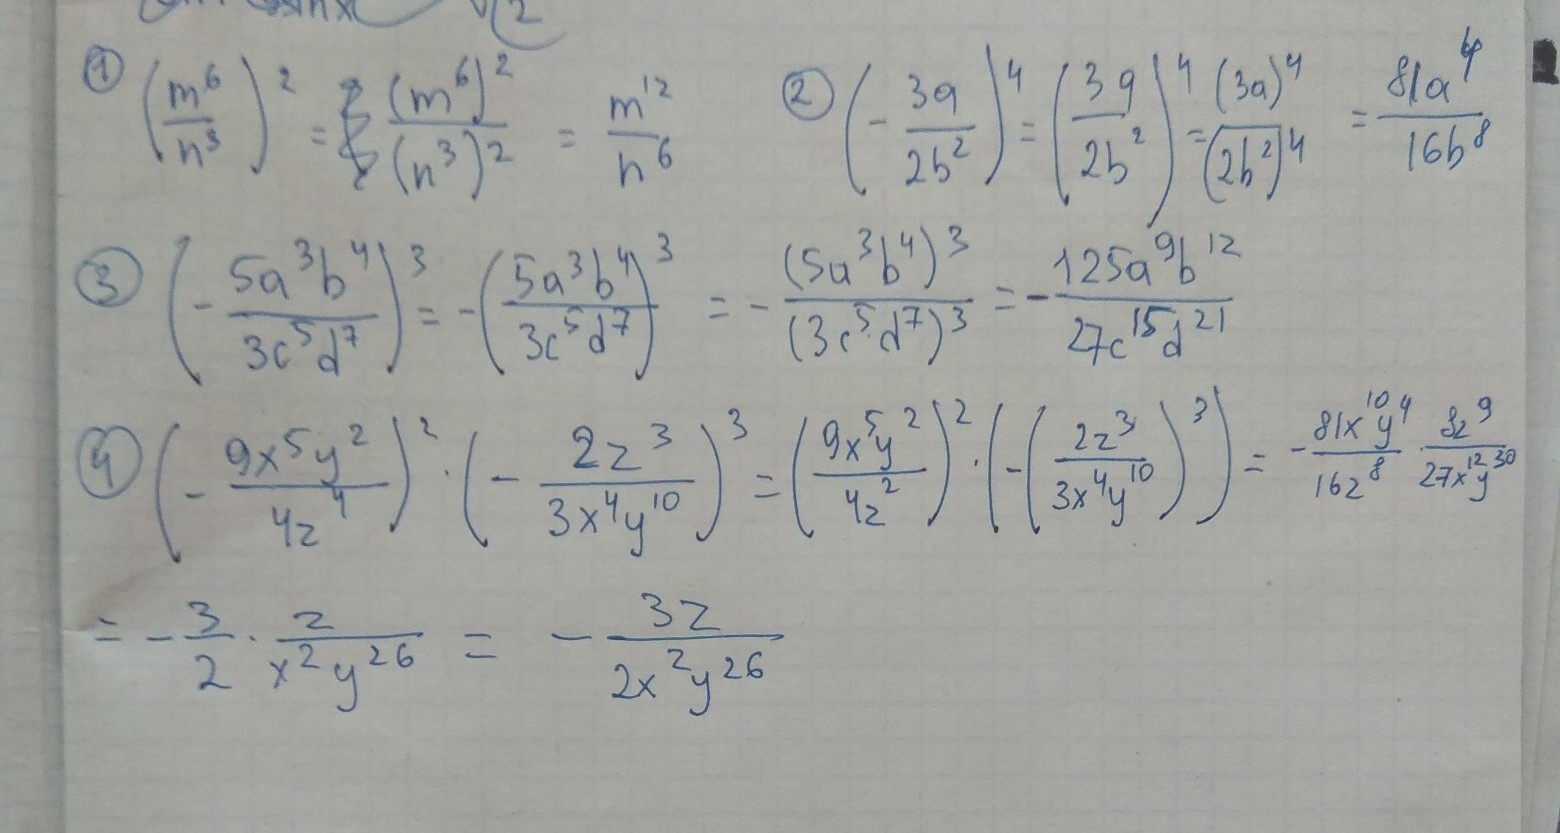 sinx √2
① (m⁶/n³)² = (m⁶)²/(n³)² = m¹²/n⁶ ② (-3a/2b²)⁴ = (3a/2b²)⁴ = (3a)⁴/(2b²)⁴ = 81a⁴/16b⁸
③ (-5a³b⁴/3c⁵d⁷)³ = -(5a³b⁴/3c⁵d⁷)³ = -(5a³b⁴)³/(3c⁵d⁷)³ = -125a⁹b¹²/27c¹⁵d²¹
④ (-9x⁵y²/4z⁴)² · (-2z³/3x⁴y¹⁰)³ = (9x⁵y²/4z²)² · (-(2z³/3x⁴y¹⁰)³) = -81x¹⁰y⁴/16z⁸ · 8z⁹/27x¹²y³⁰
= -3/2 · z/x²y²⁶ = -3z/2x²y²⁶